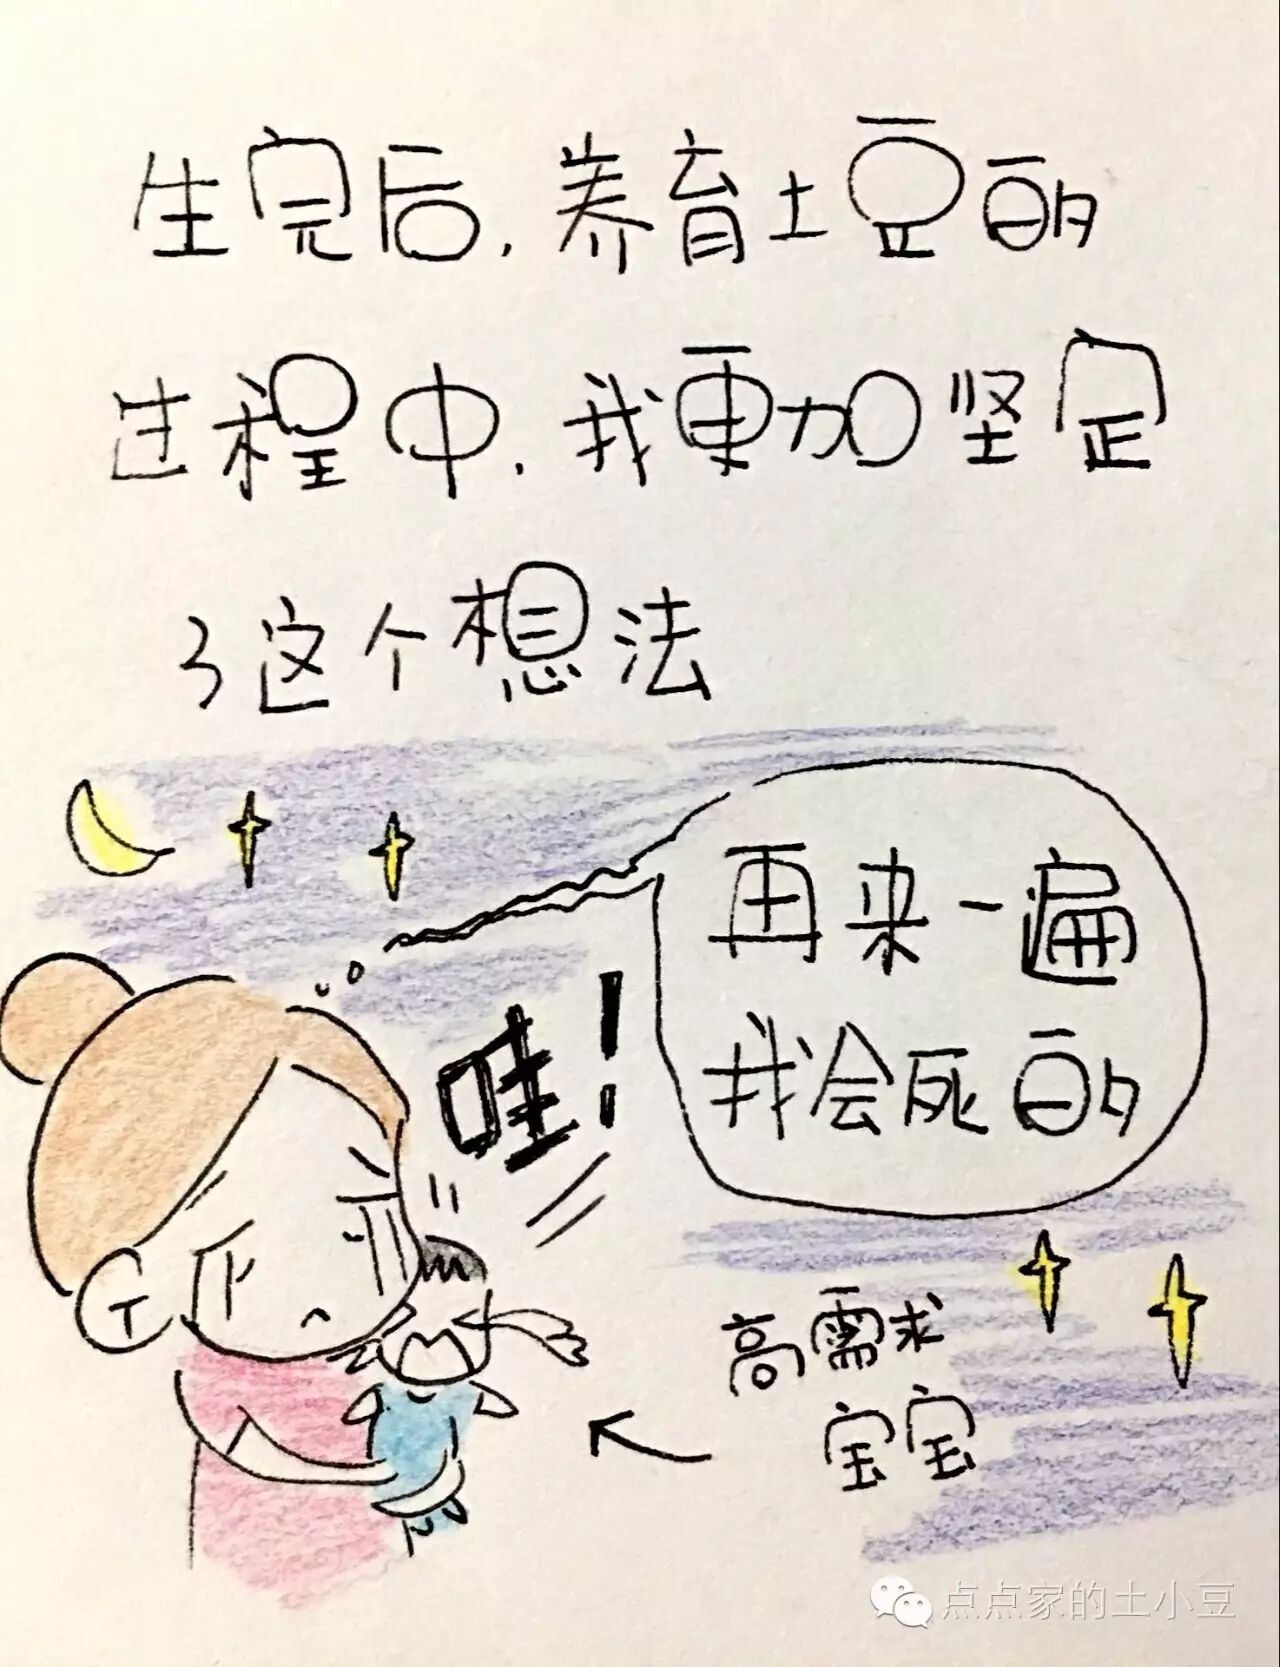 生完后，养育土豆的
过程中，我更加坚定
了这个想法
再来一遍
我会死的
哇！
高需求
宝宝
点点家的土小豆